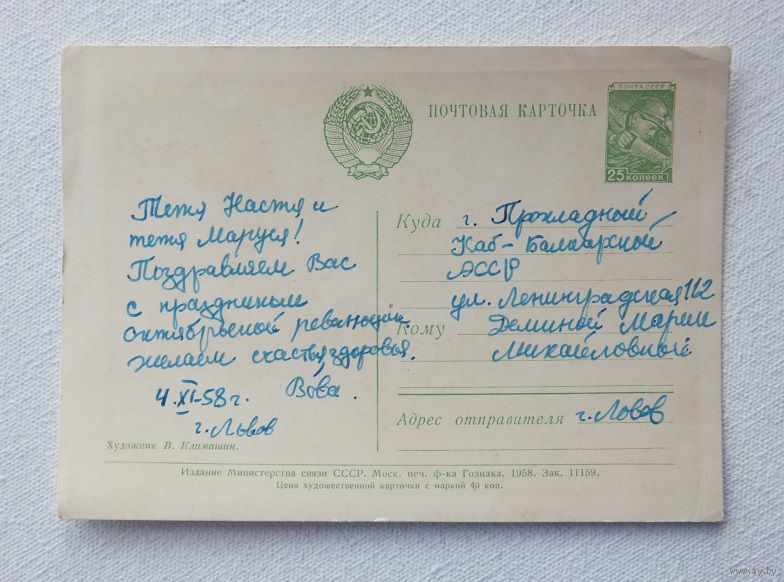 ПОЧТОВАЯ КАРТОЧКА
ПОЧТА СССР
25 КОПЕЕК
Тетя Настя и
тетя Маруся!
Поздравляем Вас
с праздником
октябрьской революции
желаем счастья, здоровья.
Вова.
4.XI-58 г.
г. Львов
Художник В. Климашин.
Куда г. Прохладный
Каб-Балкарской
АССР
ул. Ленинградская 112
Кому Деминой Марии
Михайловной
Адрес отправителя г. Львов
Издание Министерства связи СССР. Моск. печ. ф-ка Гознака. 1958. Зак. 11159.
Цена художественной карточки с маркой 40 коп.
www.ay.by